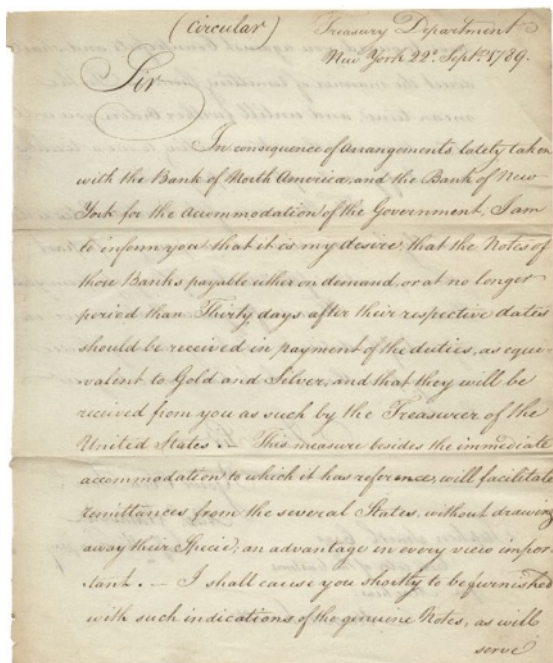 (Circular) Treasury Department
New York 22d. Septr. 1789.
Sir
In consequence of arrangements lately taken
with the Bank of North America, and the Bank of New
York for the accommodation of the Government, I am
to inform you that it is my desire, that the Notes of
those Banks payable either on demand, or at no longer
period than Thirty days after their respective dates
should be received in payment of the duties, as equi-
valent to Gold and Silver, and that they will be
received from you as such by the Treasurer of the
United States. This measure besides the immediate
accommodation to which it has reference, will facilitate
remittances from the several States, without drawing
away their Specie; an advantage in every view impor-
tant. — I shall cause you shortly to be furnished
with such indications of the genuine Notes, as will
serve